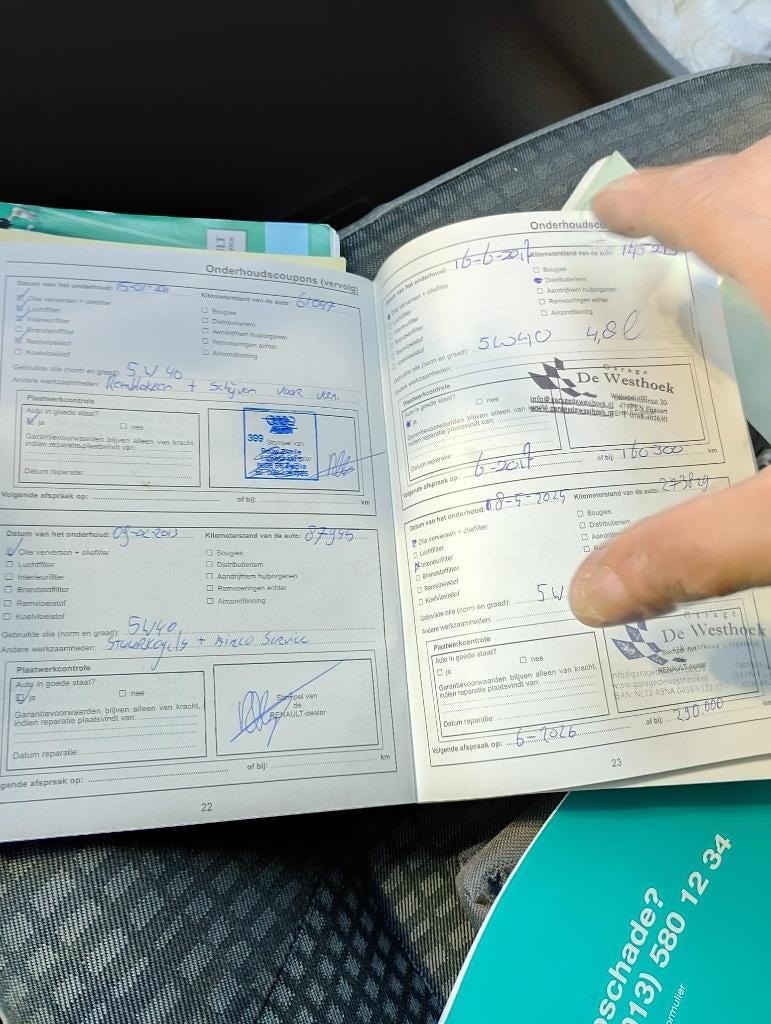 Onderhoudscoupons (vervolg)
Datum van het onderhoud: 15-01-2011 Kilometerstand van de auto: 61097
Olie verversen + oliefilter
Bougies
Luchtfilter
Distributieriem
Interieurfilter
Aandrijfriem hulporganen
Brandstoffilter
Remvoeringen achter
Remvloeistof
Airconditioning
Koelvloeistof
Gebruikte olie (norm en graad): 5W40
Andere werkzaamheden: Remblokken + Schijven voor vern.
Plaatwerkcontrole
Auto in goede staat?
ja
nee
Garantievoorwaarden blijven alleen van kracht,
indien reparatie plaatsvindt van:
Datum reparatie:
399 Stempel van
Volgende afspraak op: of bij: km
Datum van het onderhoud: 09-02-2013 Kilometerstand van de auto: 87945
Olie verversen + oliefilter
Bougies
Luchtfilter
Distributieriem
Interieurfilter
Aandrijfriem hulporganen
Brandstoffilter
Remvoeringen achter
Remvloeistof
Airconditioning
Koelvloeistof
Gebruikte olie (norm en graad): 5W40
Andere werkzaamheden: Stuurkogels + Airco Service
Plaatwerkcontrole
Auto in goede staat?
ja
nee
Garantievoorwaarden blijven alleen van kracht,
indien reparatie plaatsvindt van:
Datum reparatie:
Stempel van
de
RENAULT-dealer
gende afspraak op: of bij: km
22
Onderhoudsco
Datum van het onderhoud: 16-6-2017 Kilometerstand van de auto:
Olie verversen + oliefilter
Bougies
Luchtfilter
Distributieriem
Interieurfilter
Aandrijfriem hulporganen
Brandstoffilter
Remvoeringen achter
Remvloeistof
Airconditioning
Koelvloeistof
Gebruikte olie (norm en graad): 5W40 4,8l
Andere werkzaamheden:
Plaatwerkcontrole
Auto in goede staat?
ja
nee
Garantievoorwaarden blijven alleen van
indien reparatie plaatsvindt van:
Datum reparatie:
Garage
De Westhoek
Volgende afspraak op: 6-2017 of bij: 160300 km
Datum van het onderhoud: 08-5-2025 Kilometerstand van de auto: 273829
Olie verversen + oliefilter
Bougies
Luchtfilter
Distributieriem
Interieurfilter
Brandstoffilter
Remvloeistof
Koelvloeistof
Gebruikte olie (norm en graad): 5W
Andere werkzaamheden:
Plaatwerkcontrole
Auto in goede staat?
ja
nee
Garantievoorwaarden blijven alleen van kracht,
indien reparatie plaatsvindt van:
Datum reparatie:
Garage
De Westhoek
RENAULT-dealer
Volgende afspraak op: 6-2026 of bij: 290.000 km
23
oschade?
013) 580 12 34
ormulier